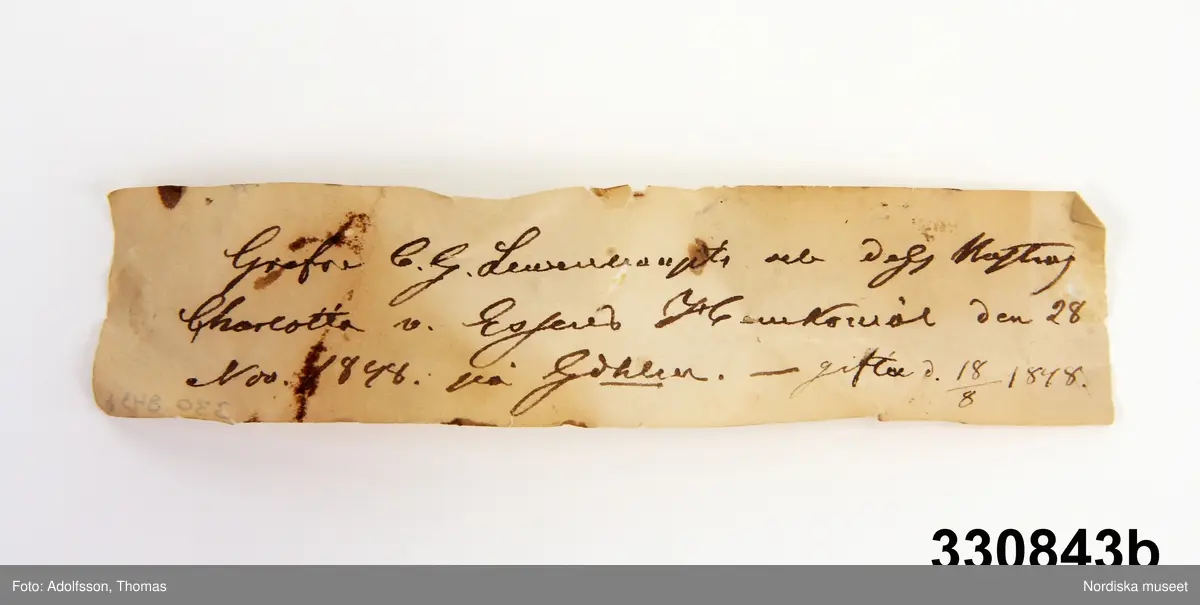 Grefve C. G. Lewenhaupts och dess Hustrus
Charlotta v. Essens Hemkomöl den 28
Nov. 1848. på Göhlen. — giftes d. 18/8 1848.
330843b
Foto: Adolfsson, Thomas
Nordiska museet